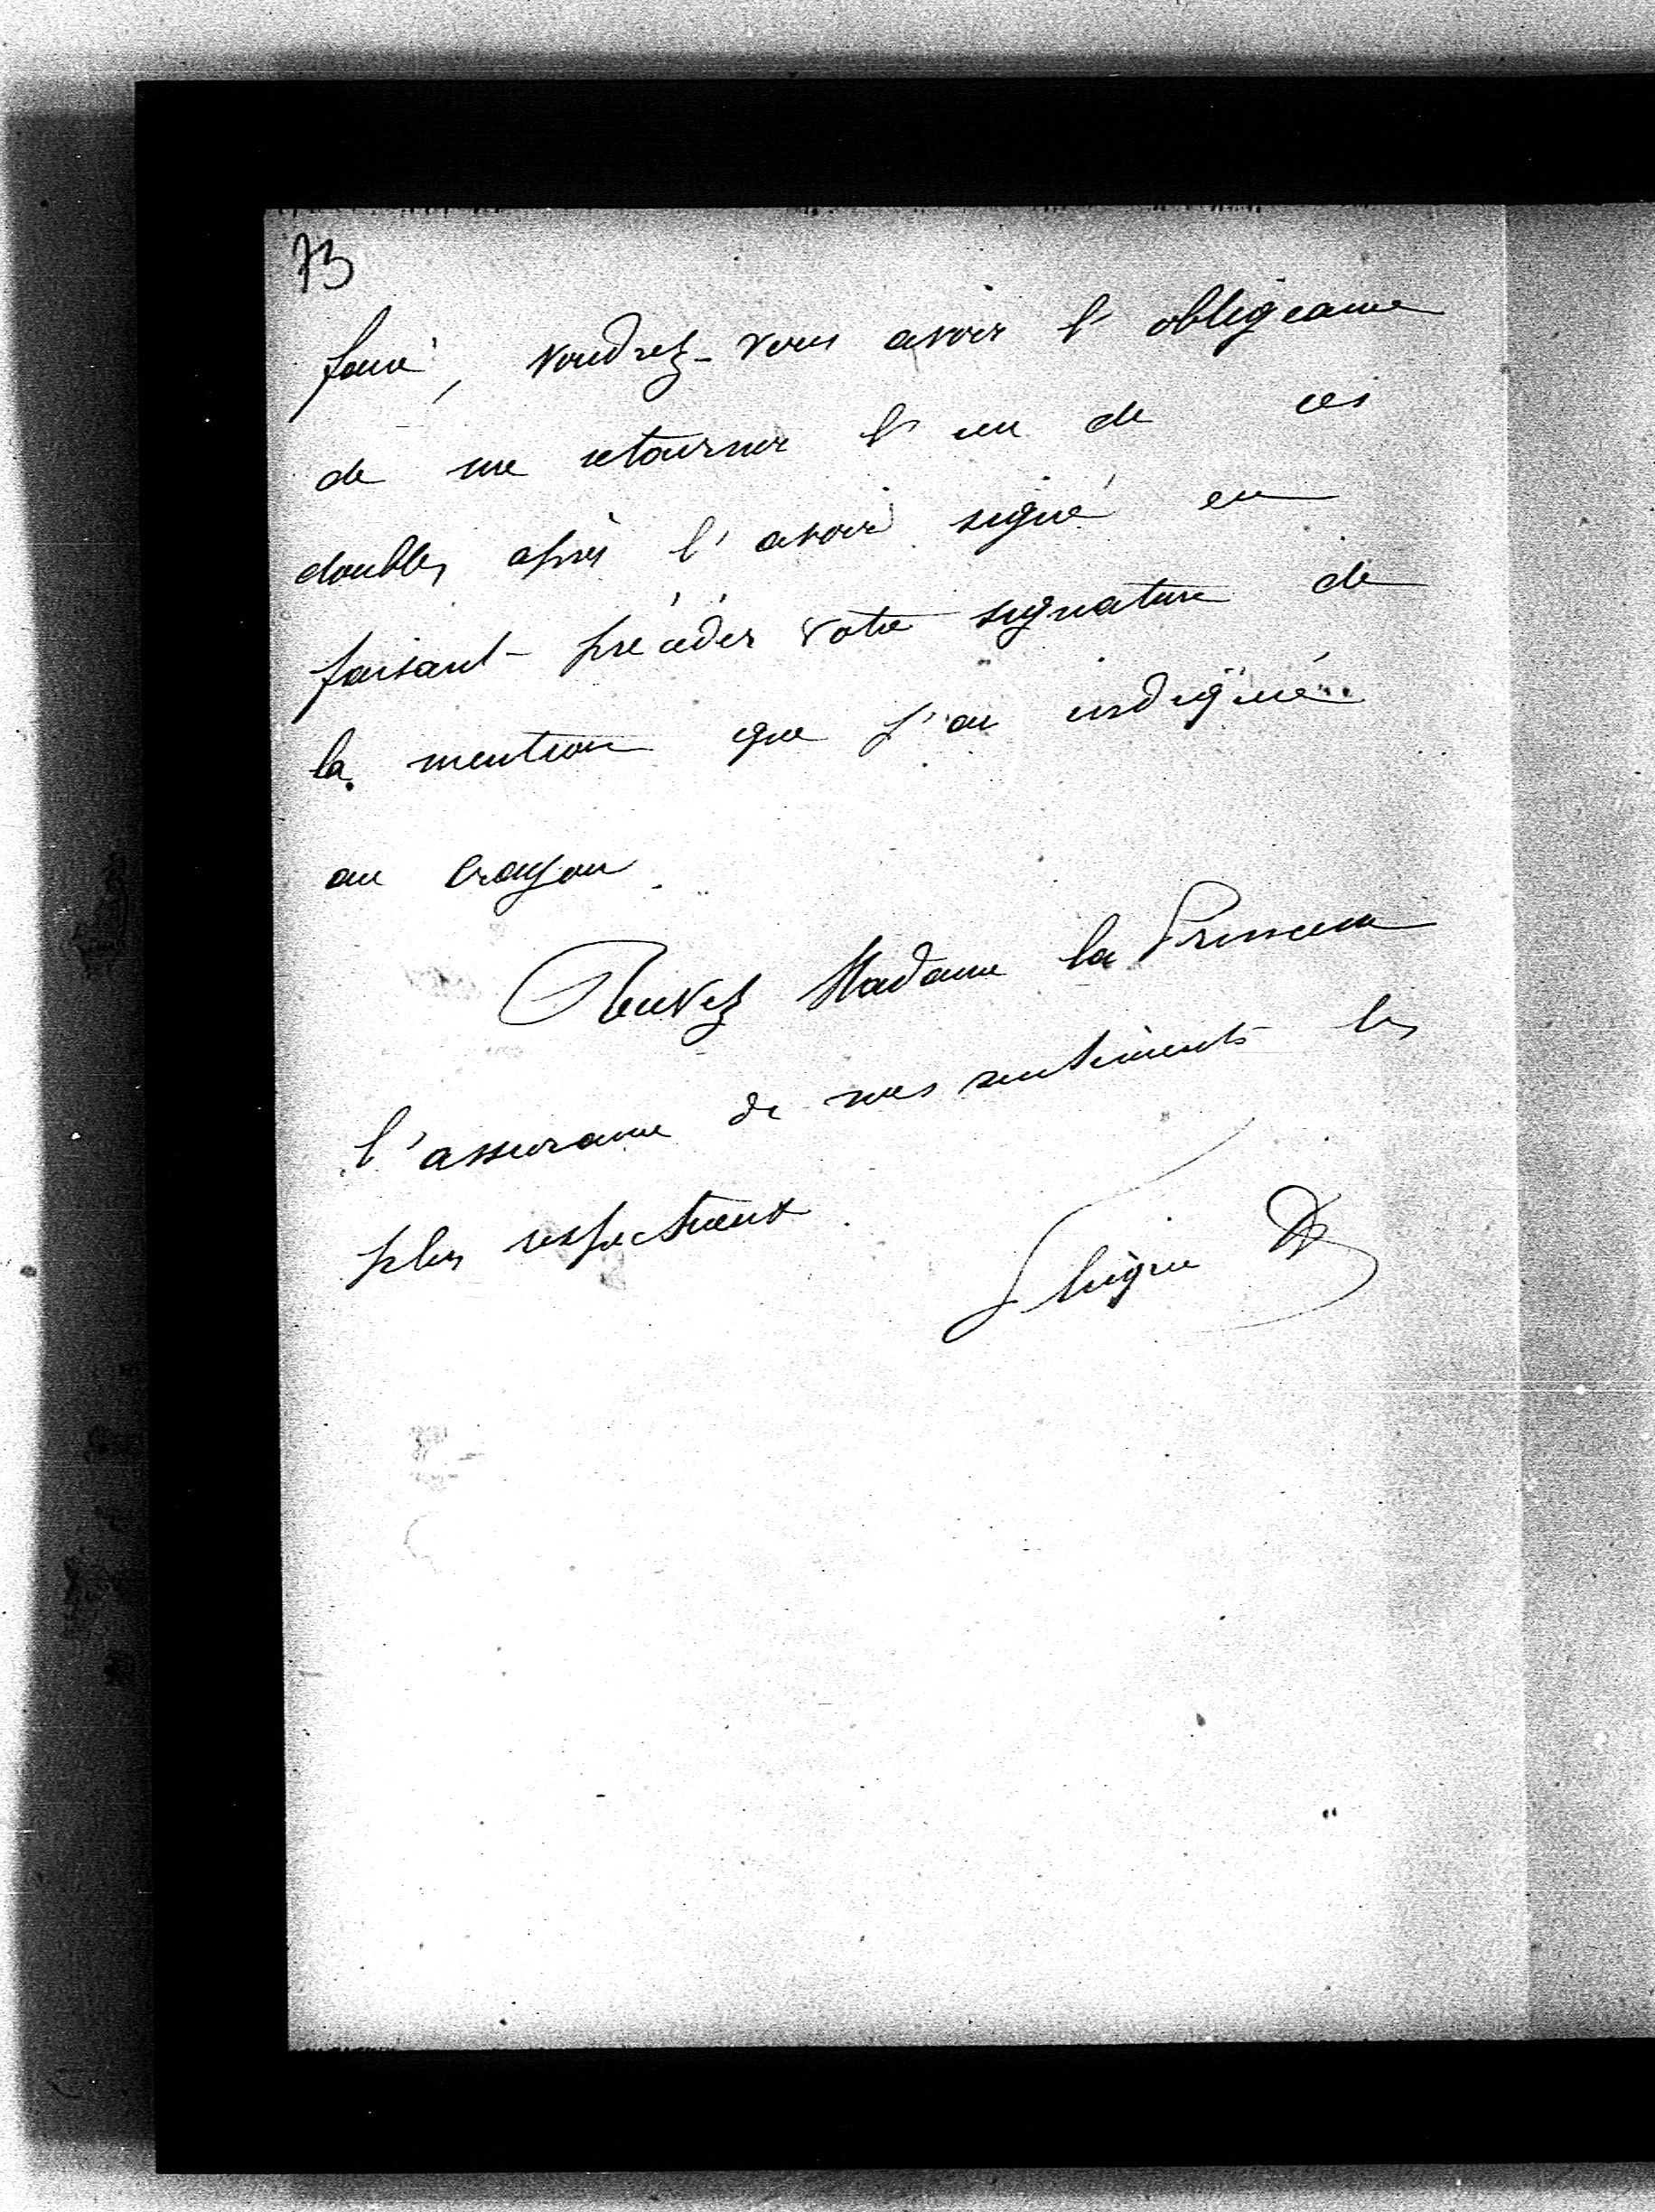 73
faire, voudrez-vous avoir l'obligeance
de me retourner l'un de ces
doubles après l'avoir signé en
faisant précéder votre signature de
la mention que j'ai indiquée
au crayon.
Recevez Madame la Princesse
l'assurance de mes sentiments les
plus respectueux.